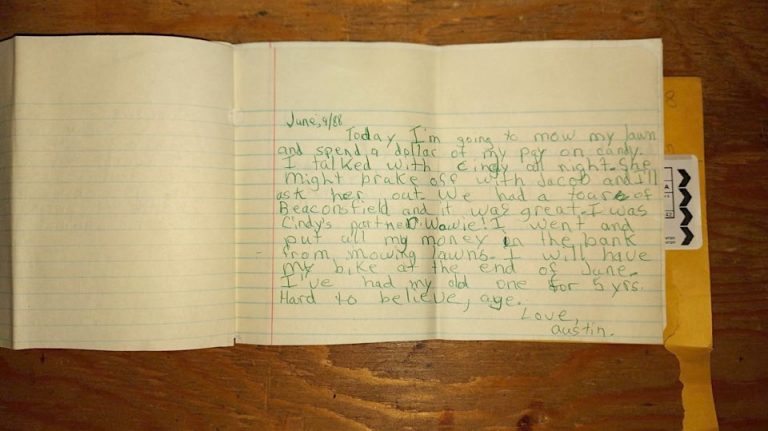 June, 9/88
Today I'm going to mow my lawn
and spend a dollar of my pay on candy.
I talked with Cindy all night. She
might brake off with Jacob and I'll
ask her out. We had a tour of
Beaconsfield and it was great. I was
Cindy's partner. Wowie! I went and
put all my money in the bank
from mowing lawns. I will have
my bike at the end of June.
I've had my old one for 5 yrs.
Hard to believe, aye.
Love,
austin.
8